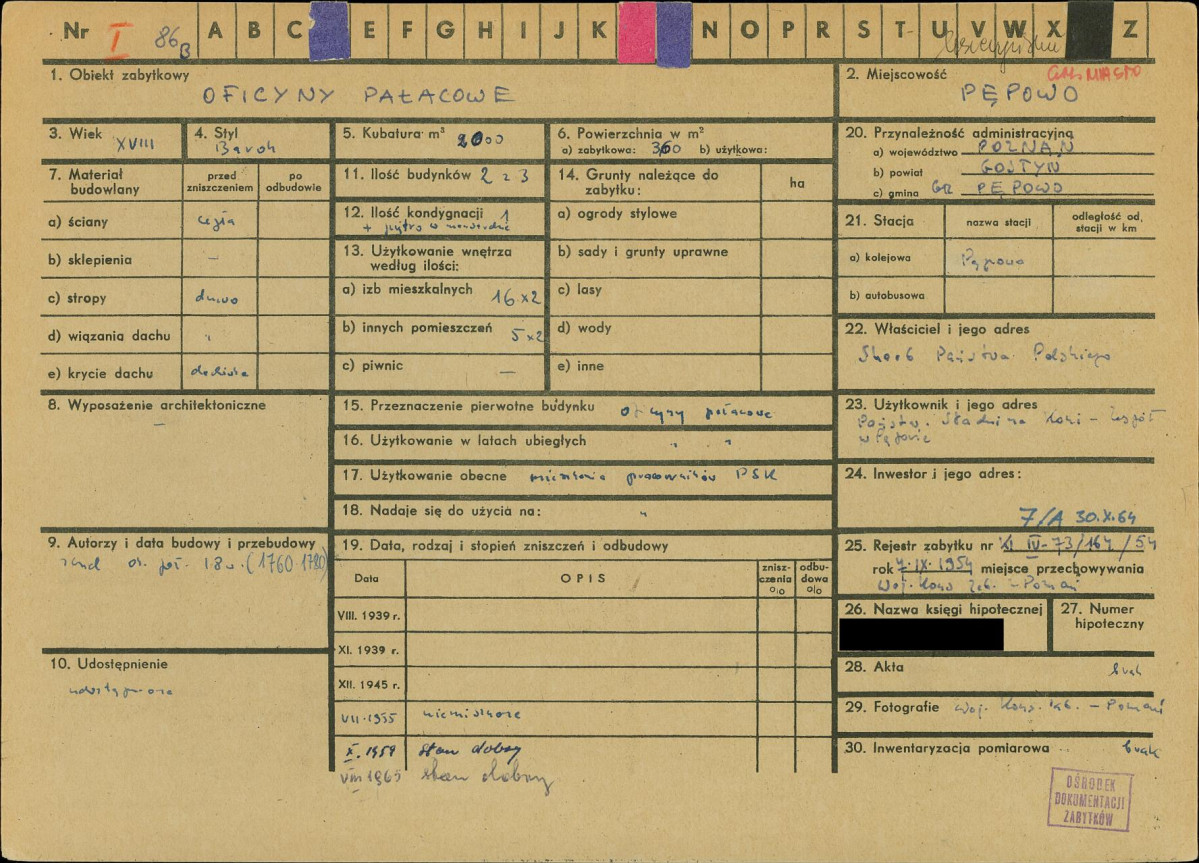 Nr I 86B A B C E F G H I J K N O P R S T U V W X Z
1. Obiekt zabytkowy
OFICYNY PAŁACOWE
2. Miejscowość
PĘPOWO
3. Wiek XVIII
4. Styl
Barok
5. Kubatura m³ 2000
6. Powierzchnia w m²
a) zabytkowa: 360 b) użytkowa:
7. Materiał budowlany
przed zniszczeniem
po odbudowie
a) ściany cegła
b) sklepienia –
c) stropy drewno
d) wiązania dachu "
e) krycie dachu dachówka
8. Wyposażenie architektoniczne
–
9. Autorzy i data budowy i przebudowy
10. Udostępnienie
11. Ilość budynków 2 z 3
12. Ilość kondygnacji 1
+ piętro w mansardzie
13. Użytkowanie wnętrza
według ilości:
a) izb mieszkalnych 16 x2
b) innych pomieszczeń 5 x2
c) piwnic –
14. Grunty należące do
zabytku:
ha
a) ogrody stylowe
b) sady i grunty uprawne
c) lasy
d) wody
e) inne
15. Przeznaczenie pierwotne budynku oficyny pałacowe
16. Użytkowanie w latach ubiegłych " "
17. Użytkowanie obecne mieszkania pracowników PSK
18. Nadaje się do użycia na: "
19. Data, rodzaj i stopień zniszczeń i odbudowy
Data
OPIS
znisz-
czenia
%
odbu-
dowa
%
VIII. 1939 r.
XI. 1939 r.
XII. 1945 r.
VII. 1955 niezniszczone
X. 1959 stan dobry
VIII 1965 stan dobry
20. Przynależność administracyjna
a) województwo POZNAŃ
b) powiat GOSTYŃ
c) gmina GR PĘPOWO
21. Stacja
nazwa stacji
odległość od.
stacji w km
a) kolejowa Pępowo
b) autobusowa
22. Właściciel i jego adres
Skarb Państwa Polskiego
23. Użytkownik i jego adres
Państw. Stadnina Koni – Zespół
w Pępowie
24. Inwestor i jego adres:
7/A 30.X.64
25. Rejestr zabytku nr XI IV-73/164/54
rok 7.IX.1954 miejsce przechowywania
Woj. Kons. Zab. – Poznań
26. Nazwa księgi hipotecznej
27. Numer
hipoteczny
28. Akta brak
29. Fotografie Woj. Kons. Zab. – Poznań
30. Inwentaryzacja pomiarowa brak
OŚRODEK
DOKUMENTACJI
ZABYTKÓW